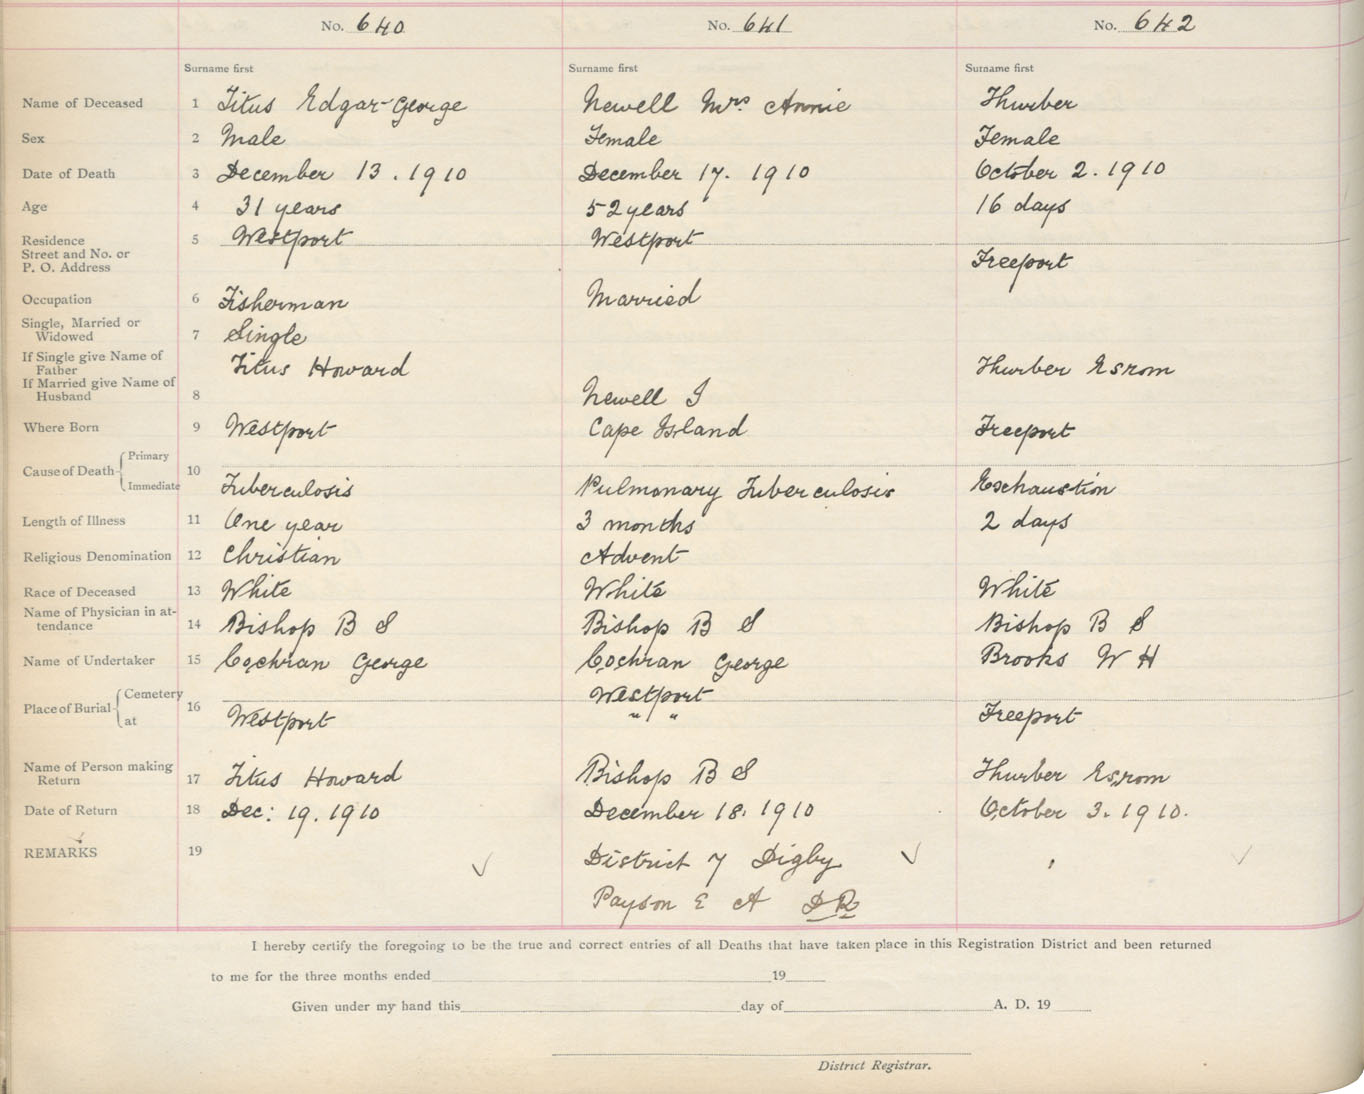 No. 640 No. 641 No. 642
Surname first Surname first Surname first
Name of Deceased 1 Titus Edgar George Newell Mrs. Annie Thurber
Sex 2 Male Female Female
Date of Death 3 December 13. 1910 December 17. 1910 October 2. 1910
Age 4 31 years 52 years 16 days
Residence 5 Westport Westport
Street and No. or
P. O. Address Freeport
Occupation 6 Fisherman Married
Single, Married or
Widowed 7 Single
If Single give Name of
Father Titus Howard Thurber Esrom
If Married give Name of
Husband 8 Newell I
Where Born 9 Westport Cape Island Freeport
Primary
Cause of Death 10
Immediate Tuberculosis Pulmonary Tuberculosis Exchaustion
Length of Illness 11 One year 3 months 2 days
Religious Denomination 12 Christian Advent
Race of Deceased 13 White White White
Name of Physician in at-
tendance 14 Bishop B S Bishop B S Bishop B S
Name of Undertaker 15 Cochran George Cochran George Brooks W H
Cemetery Westport
Place of Burial 16
at Westport " " Freeport
Name of Person making
Return 17 Titus Howard Bishop B S Thurber Esrom
Date of Return 18 Dec: 19. 1910 December 18. 1910 October 3. 1910.
REMARKS 19 District 7 Digby
Payson E A DR
I hereby certify the foregoing to be the true and correct entries of all Deaths that have taken place in this Registration District and been returned
to me for the three months ended 19
Given under my hand this day of A. D. 19
District Registrar.